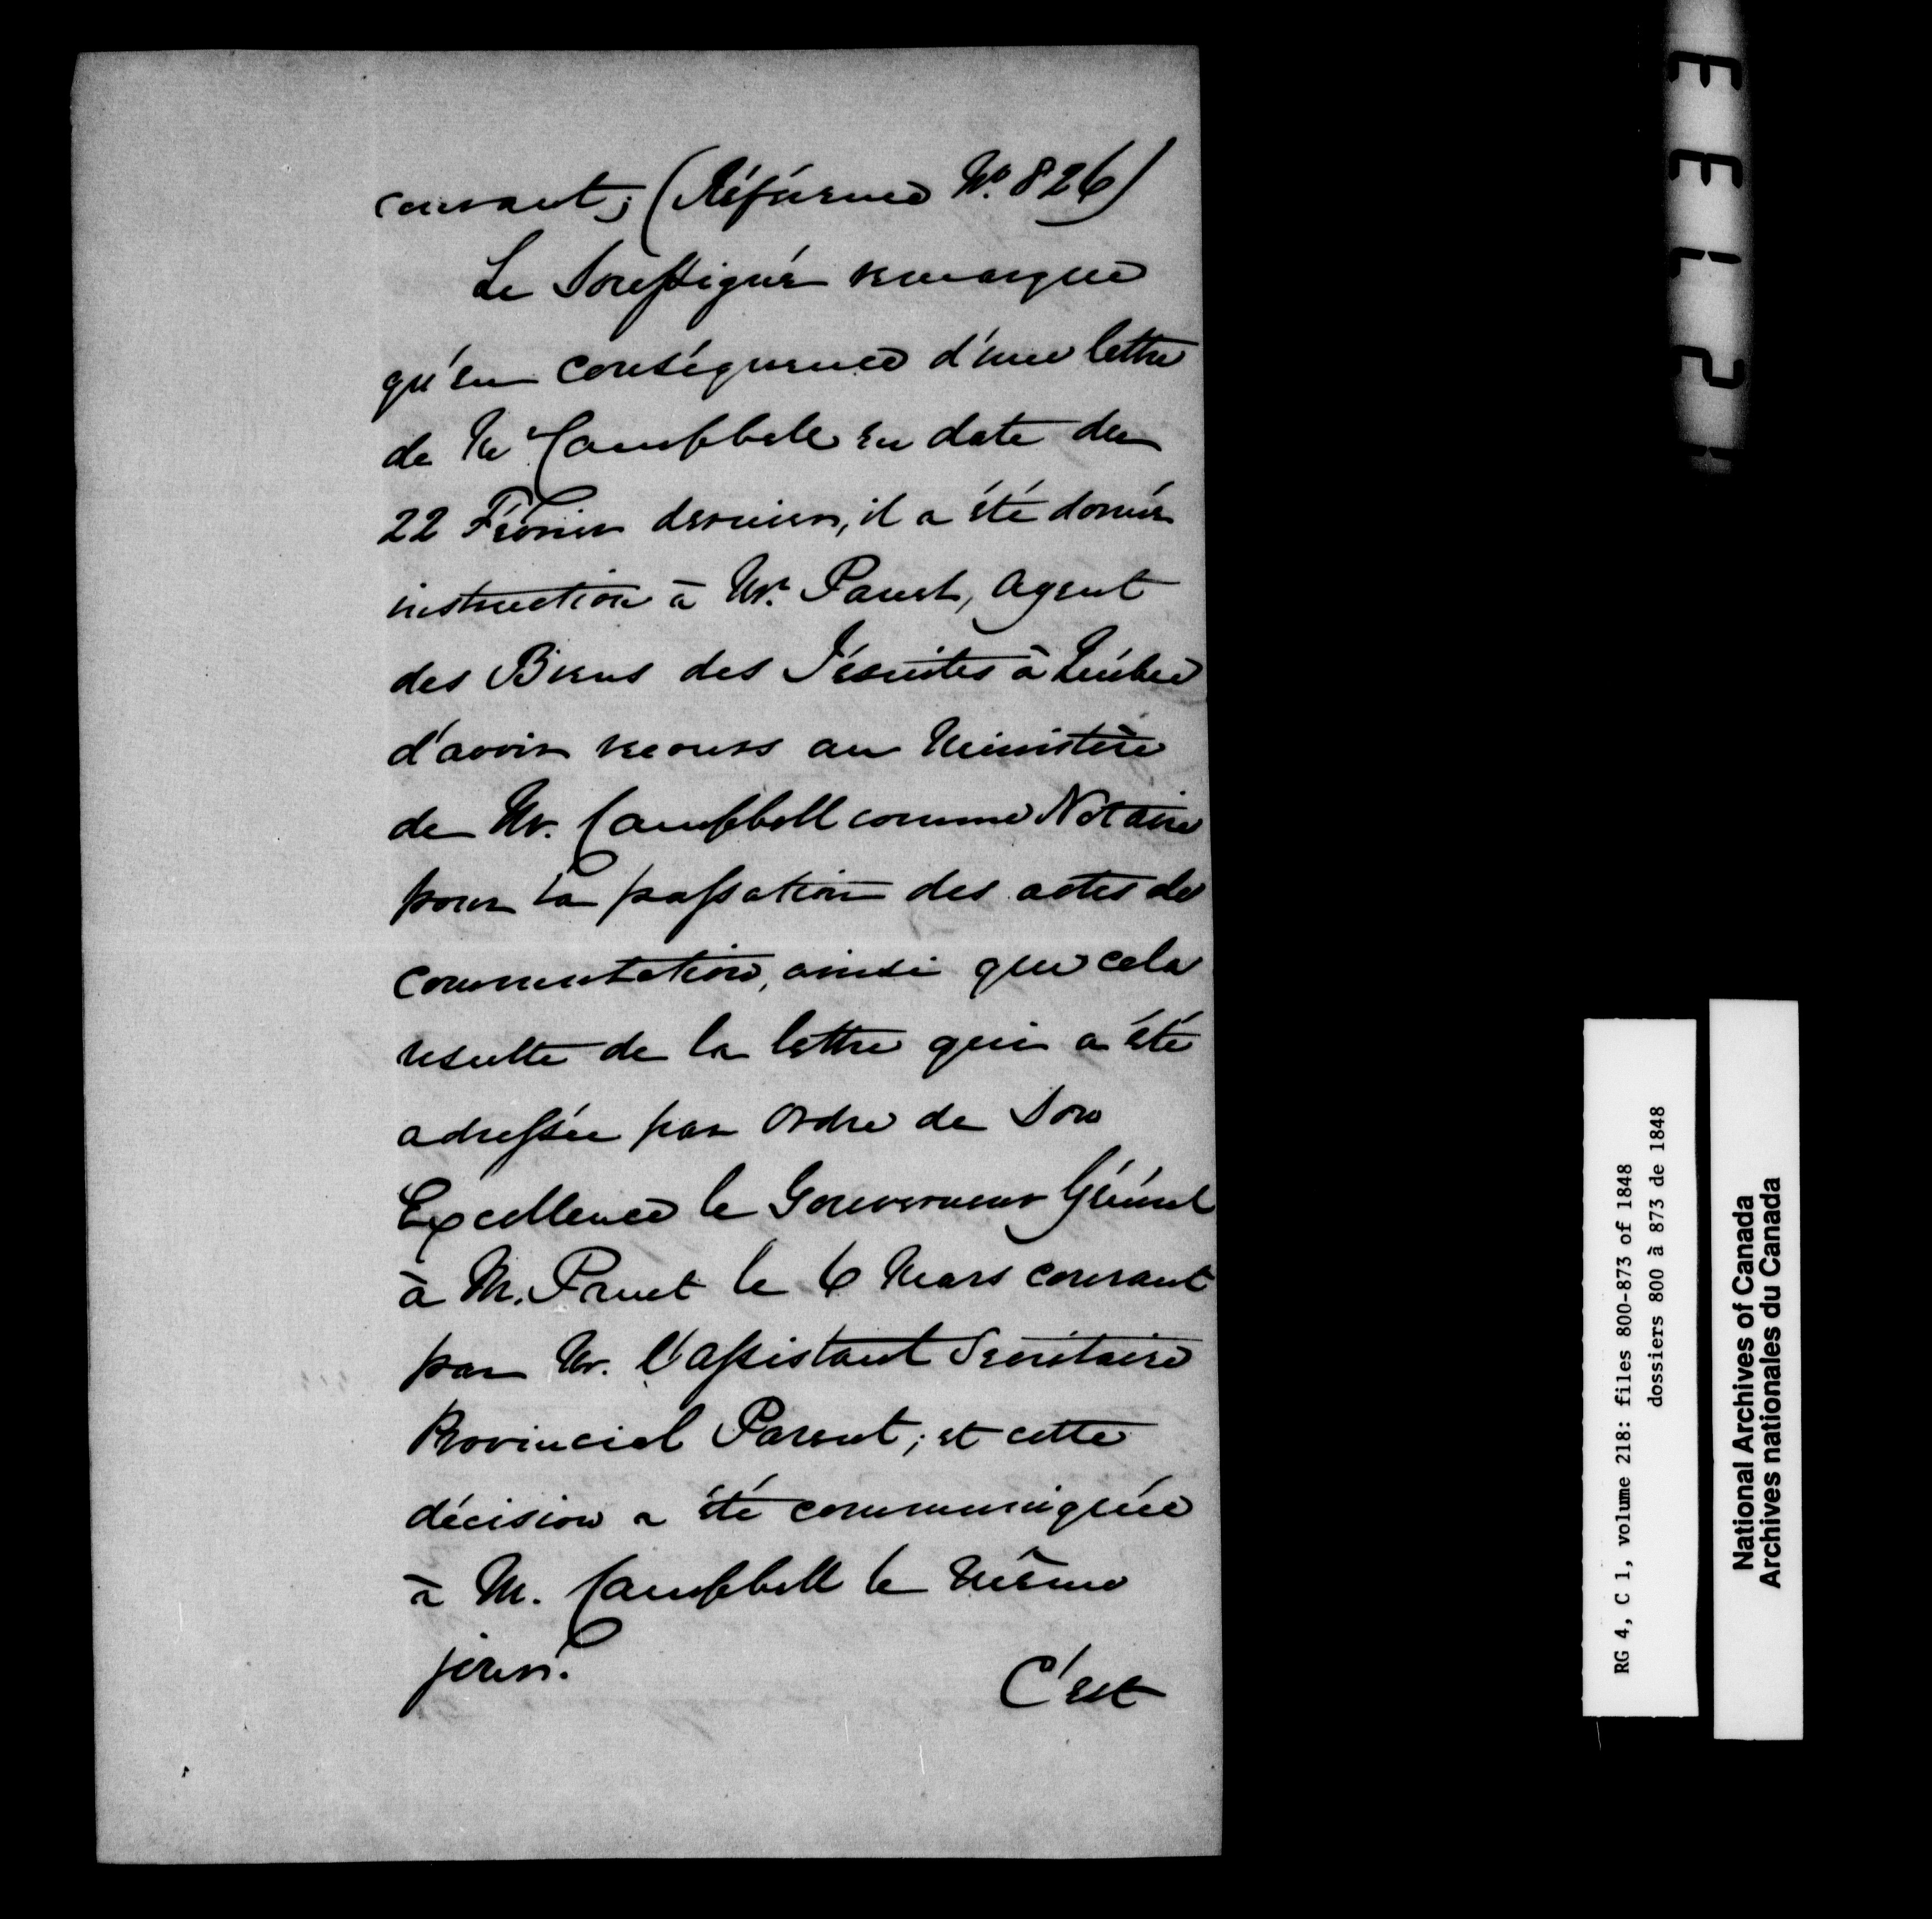 courant; (Référence No. 826)
Le Soussigné remarque
qu'en conséquence d'une lettre
de Mr Campbell en date du
22 Février dernier, il a été donné
instruction à Mr. Panet, Agent
des Biens des Jésuites à Québec
d'avoir recours au Ministère
de Mr. Campbell comme Notaire
pour la passation des actes de
commutation, ainsi que cela
resulte de la lettre qui a été
adressée par Ordre de Son
Excellence le Gouverneur Général
à M. Panet le 6 Mars courant
par Mr. l'Assistant Secrétaire
Provincial Parent; et cette
décision a été communiquée
à M. Campbell le même
jour.
C'est
RG 4, C 1, volume 218: files 800-873 of 1848
dossiers 800 à 873 de 1848
National Archives of Canada
Archives nationales du Canada